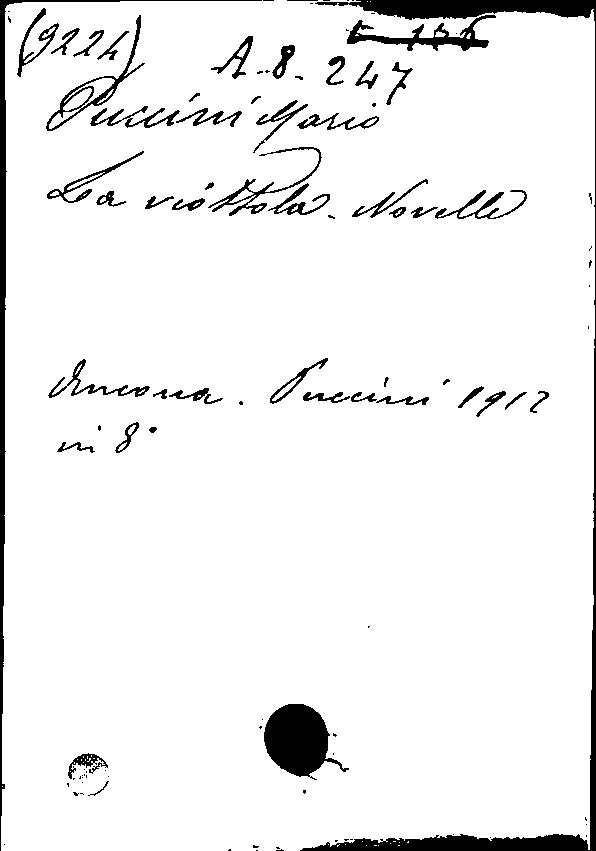 (9224)
A. 8. 247
Puccini Mario
La viottola. Novelle
Ancona. Puccini 1912
in 8°